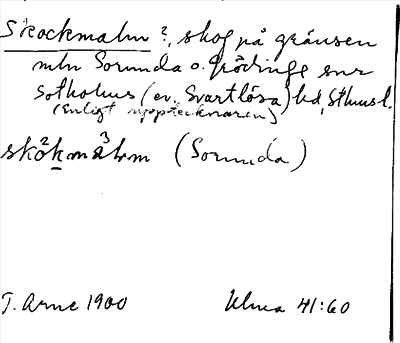 Skockmalm?, skog på gränsen
mln Sorunda o. Grödinge snr
Sotholms (ev. Svartlösa) hd, Sthmsl.
(Enligt upptecknaren)
sko²kma³lm (Sorunda)
T. Arne 1900 Ulma 41:60